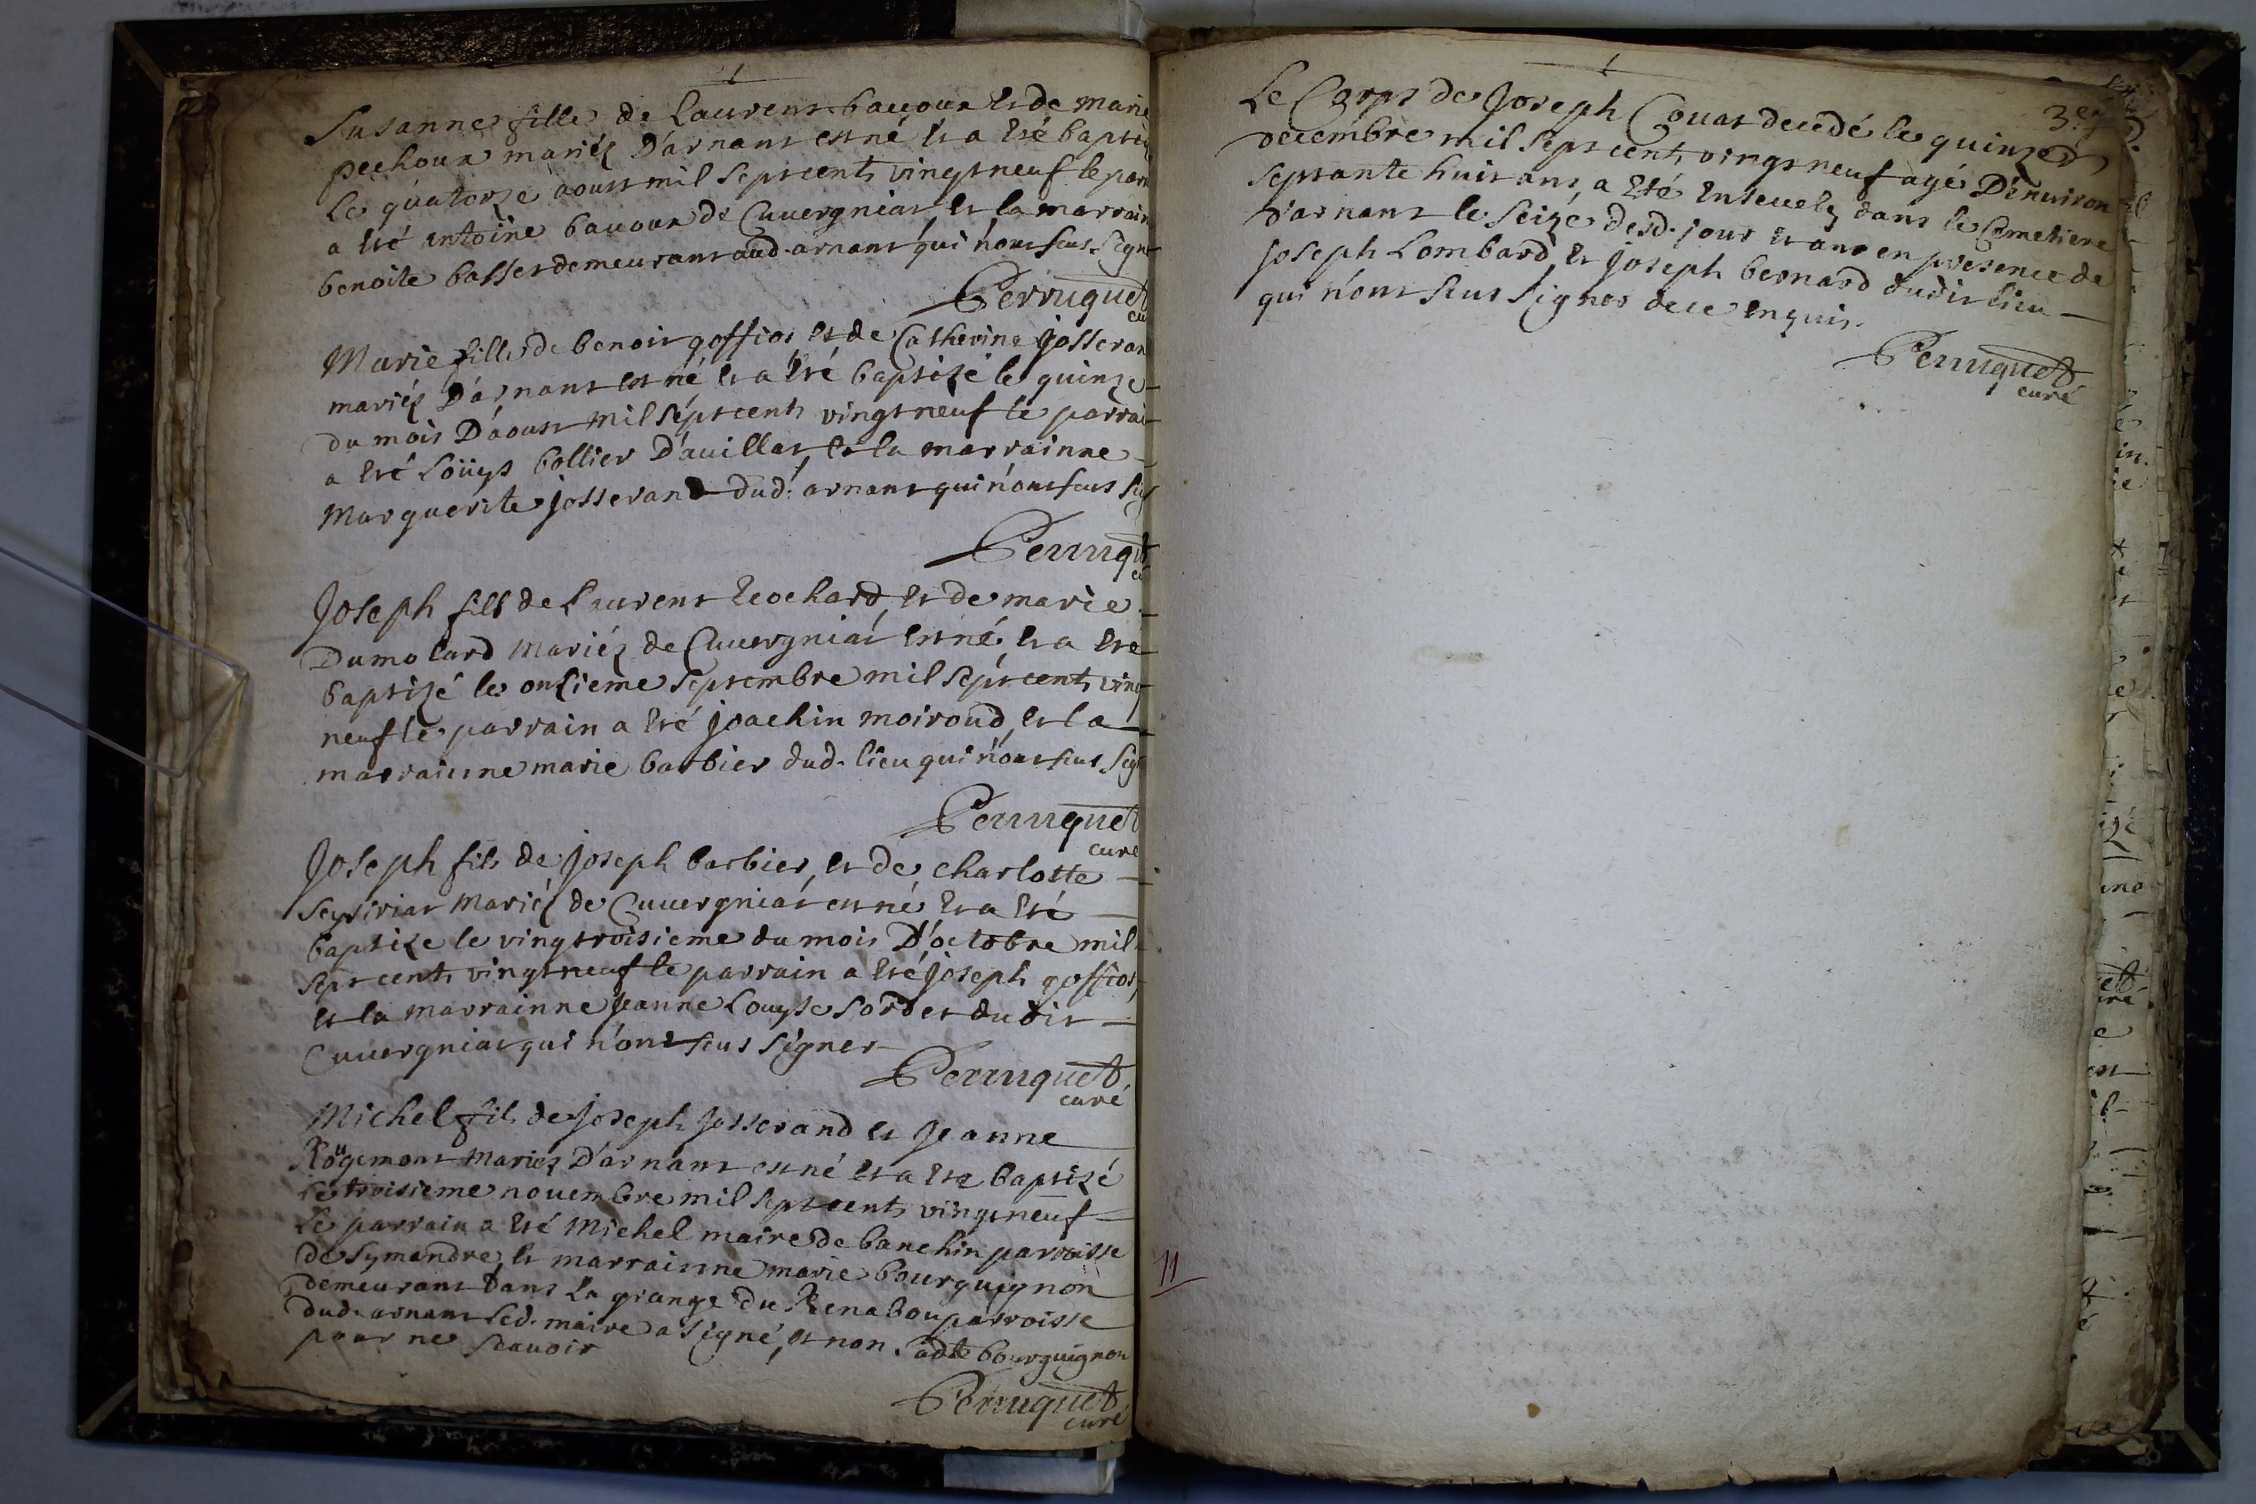 Susanne fille de Laurens bavoux et de marie
pechoux mariez D'arnans est né et a été baptis
Le quatorze aoust mil sept cents vingt neuf le parr
a été antoine bavoux de Cuvergniat et la marrain
benoite basset demeurant aud. arnans qui n'ont sçus signe
Perruquet
cu
Marie fille de benoit goffios et de Catherine josseran
mariéz D'arnans est né et a été baptizé le quinze
du mois D'aoust mil sept cents vingt neuf le parrai
a été Loüys bollier D'avillas et la marrainne
Marguerite josserand dud. arnans qui n'ont sçus sig
Perruqu
Joseph fils de Laurens Ecochard et de marie
Dumolard mariéz de Cuvergniat est né et a été
baptizé le onzieme septembre mil sept cents ving
neuf le parrain a été joachin moiroud, et la
marrainne marie barbier dud. lieu qui n'ont sçus sig
Perruquet
curé
Joseph fils de joseph barbier, et de charlotte
Seysiriat mariéz de Cuvergniat est né et a été
baptize le vingt troisieme du mois D'octobre mil
sept cents vingt neuf le parrain a été joseph goffios,
et la marrainne jeanne Louyse Sordet dudit
Cuvergniat qui n'ont sçus signer
Perruquet
curé
Michel fils de joseph josserand et jeanne
Rougemont mariez D'arnans est né et a été baptizé
le troisieme novembre mil sept cents vingt neuf
le parrain a été Michel maire de banchin parroisse
de Symandre, et marrainne marie bourguignon
demeurant dans la grange du Renabou parroisse
dud. arnans led. maire a signé, et non ladte bourguignon
pour ne scavoir
Perruquet
curé
3e
Le Corps de Joseph Couat decedé le quinze
decembre mil sept cents vingt neuf agé D'environ
septante huit ans, a été ensevely dans le Cemetiere
d'arnans le seize desd. jour et ans en presence de
joseph Lombard, et joseph bernard dudit lieu
qui n'ont sçus signer de ce enquis.
Perruquet
curé
11